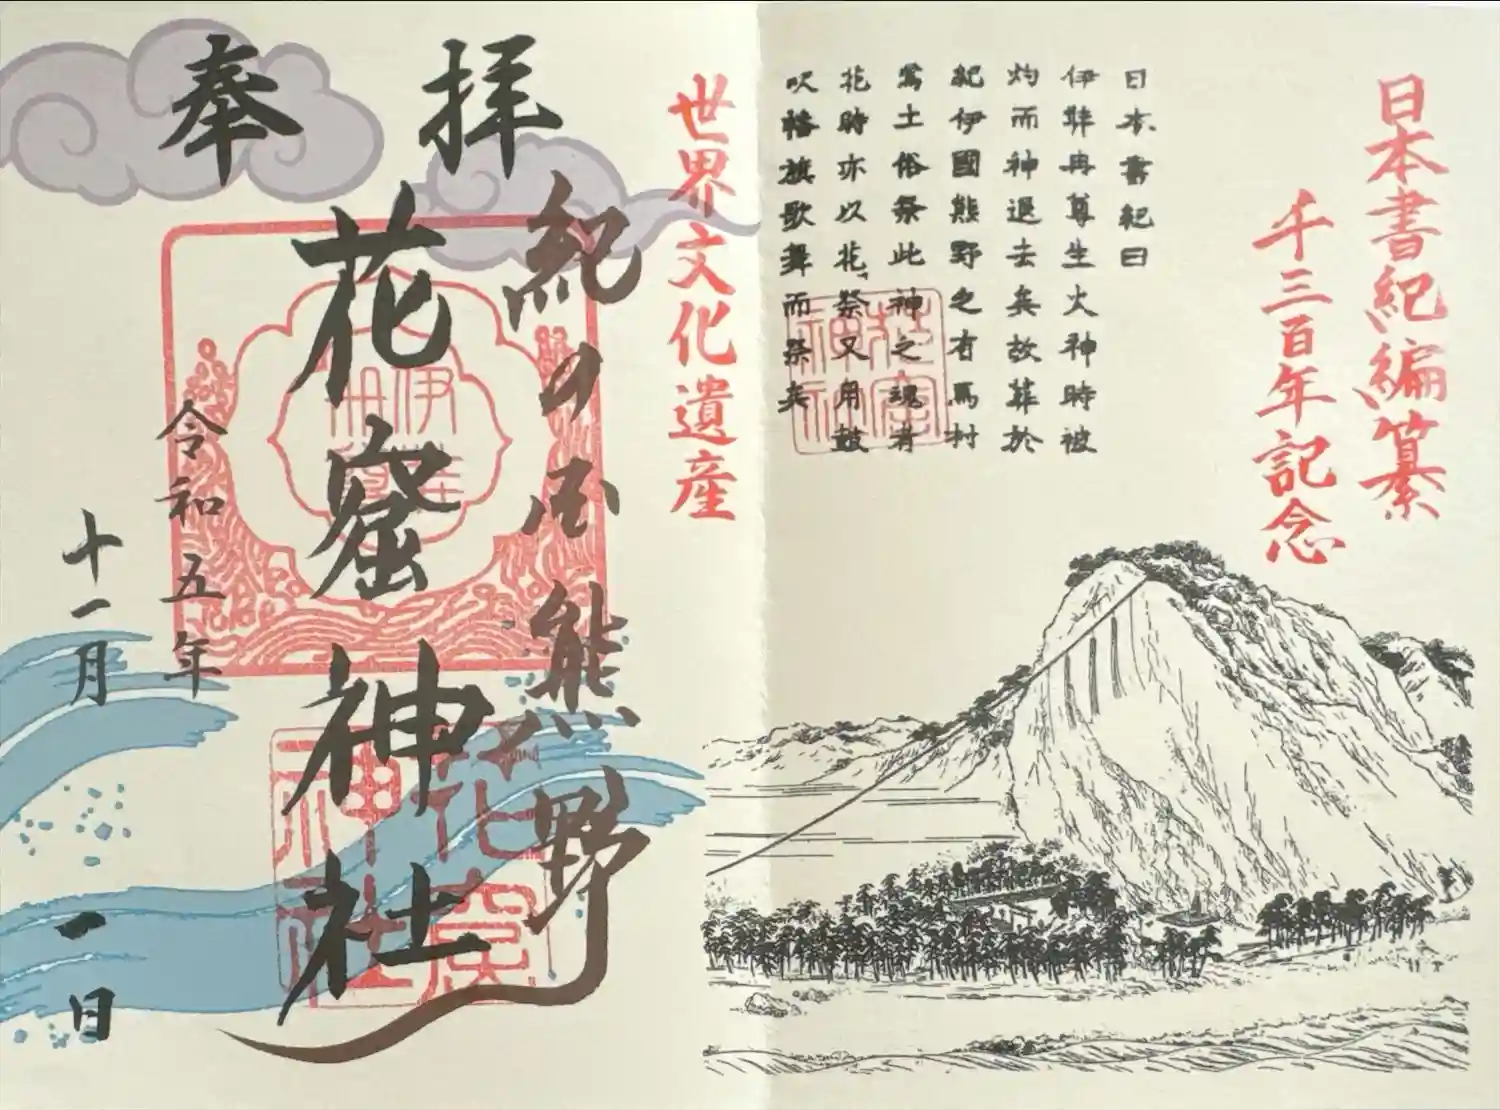 日本書紀編纂
千三百年記念
日本書紀曰
伊弉冉尊生火神時被
灼而神退去矣故葬於
紀伊國熊野之有馬村
焉土俗祭此神之魂者
花時亦以花祭又用鼓
吹幡旗歌舞而祭矣
花窟
神社
世界文化遺産
奉拝
紀の国熊野
花窟神社
伊弉
冉尊
花窟
神社
令和五年
十一月一日